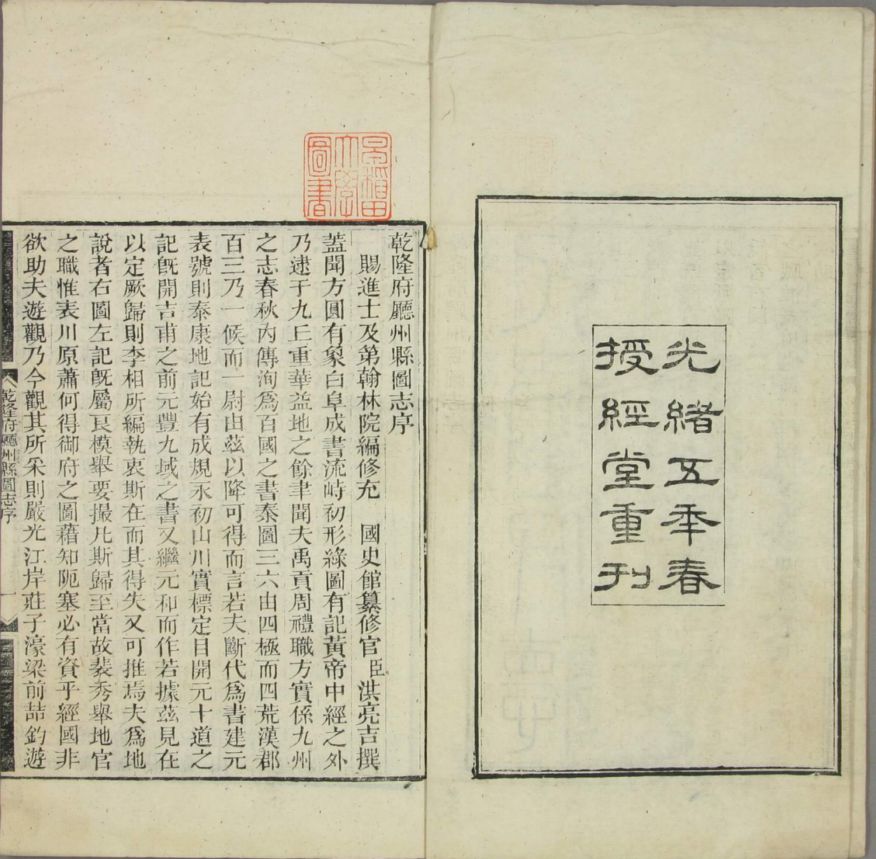 光緒五年春
授經堂重刊
早稲田
大學
圖書
乾隆府廳州縣圖志序
賜進士及第翰林院編修充 國史館纂修官臣洪亮吉撰
蓋聞方圓有象白阜成書流峙初形綠圖有記黃帝中經之外
乃逮于九丘重華益地之餘聿聞夫禹貢周禮職方實係九州
之志春秋內傳洵爲百國之書泰圖三六由四極而四荒漢郡
百三乃一候而一尉由茲以降可得而言若夫斷代爲書建元
表號則泰康地記始有成規永初山川實標定目開元十道之
記旣開吉甫之前元豐九域之書又繼元和而作若據茲見在
以定厥歸則李相所編執衷斯在而其得失又可推焉夫爲地
說者右圖左記旣屬良模舉要撮凡斯歸至當故裴秀舉地官
之職惟表川原蕭何得御府之圖藉知阨塞必有資乎經國非
欲助夫遊觀乃今觀其所采則嚴光江岸莊子濠梁前喆釣遊
乾隆府廳州縣圖志序
一